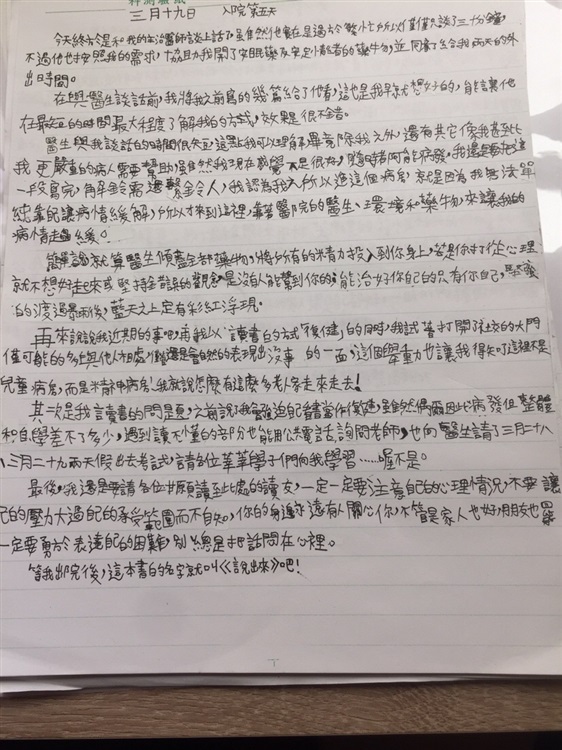 三月十九日 入院第五天
今天終於是和我的主治醫師談上話了,雖然他實在是過於繁忙,所以僅僅只談了三十分鐘,
不過他也按照我的需求,協助我開了安眠藥及安定情緒的藥物,並同意了給我兩天的外
出時間。
在與醫生談話前,我將我之前寫的幾篇給了他看,這也是我早就想好的,能讓他
在最短的時間最大程度了解我的方式,效果是很不錯。
醫生與我談話的時間很短這點我可以理解,畢竟除我之外,還有其它像我甚至比
我更嚴重的病人需要幫助,雖然我現在感覺不是很好,隨時有可能病發,我還是要把這
一段寫完,再
我認為我之所以進這個病房,就是因為我無法單
純靠自己讓病情緩解,所以才來到這裡,靠著醫院的醫生、環境和藥物,來讓我的
病情趨緩。
簡單說就算醫生傾盡全部藥物,將所有的精力投入到你身上,若是你打從心理
就不想好起來或堅持錯誤的觀念,是沒人能幫到你的,能治好你自己的只有你自己,堅強
的渡過暴雨後,藍天之上定有彩虹浮現。
再來說說我近期的事吧,再我以讀書的方式「復健」的同時,我試著打開了社交的大門
僅可能的多與他人相處,
還是會自然的表現出沒事的一面,這個舉動也讓我得知了這裡不是
兒童病房,而是精神病房!我就說怎麼有這麼多老人家走來走去!
其次是我讀書的問題,之前說了我會強迫自己看書當作復健,雖然偶爾因此病發但整體
和自學差不了多少,遇到讀不懂的部份也能用公共電話詢問老師,也向醫生請了三月二十八
、三月二十九兩天假出去考試,請各位莘莘學子們向我學習……喔不是。
最後,我還是要請各位
願讀至此處的讀友,一定一定要注意自己的心理情況,不要讓
自己的壓力大過自己的承受範圍而不自知,你的身邊永遠有人關心你,不管是家人也好,朋友也罷
一定要勇於表達自己的困難,別總是把話悶在心裡。
等我出院後,這本書的名字就叫《說出來》吧!